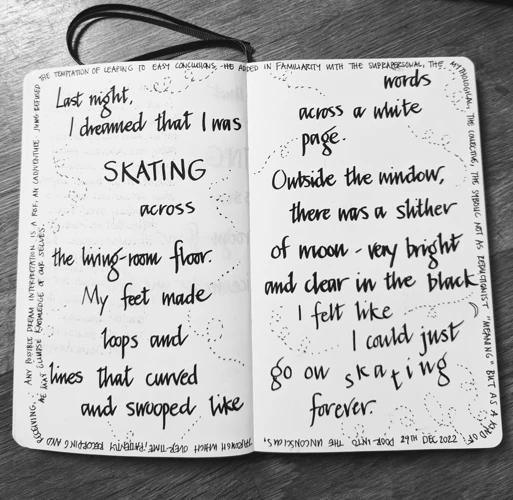 Last night,
I dreamed that I was
SKATING
across
the living-room floor.
My feet made
loops and
lines that curved
and swooped like
words
across a white
page.
Outside the window,
there was a slither
of moon - very bright
and clear in the black
I felt like
I could just
go on skating
forever.
THE TEMPTATION OF LEAPING TO EASY CONCLUSIONS, HE ADDED IN FAMILIARITY WITH THE SUPRAPERSONAL, THE
MYTHOLOGICAL, THE COLLECTIVE, THE SYMBOLIC NOT AS REDUCTIONIST "MEANING" BUT AS A KIND OF
DOOR INTO THE UNCONSCIOUS,
29TH DEC 2022
THROUGH WHICH OVER TIME, PATIENTLY RECORDING AND
OBSERVING,
WE MAY GLIMPSE KNOWLEDGE OF OUR SELVES.
ANY POSSIBLE DREAM INTERPRETATION IS A
AN ADVENTURE. JUNG REFUSED